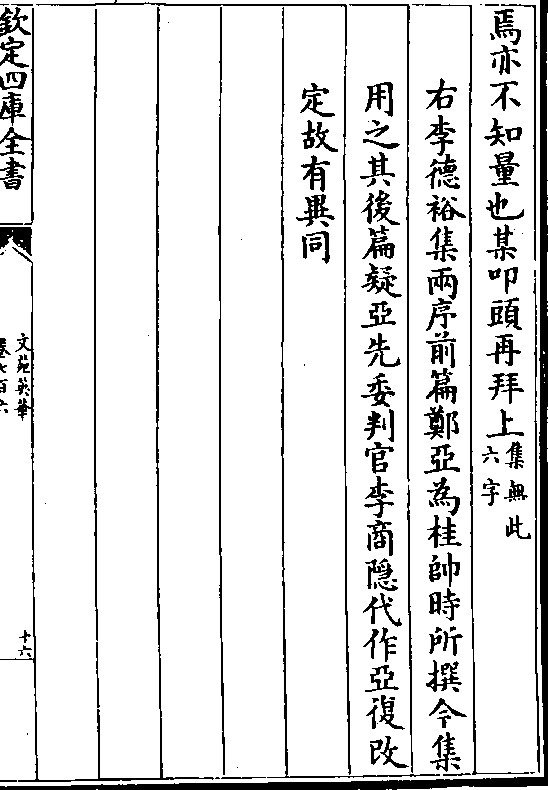 焉亦不知量也某叩頭再拜上集無此六字
右李德裕集兩序前篇鄭亞為桂帥時所撰今集
用之其後篇疑亞先委判官李商隱代作亞復改
定故有異同
欽定四庫全書
文苑英華
卷七百六
十六